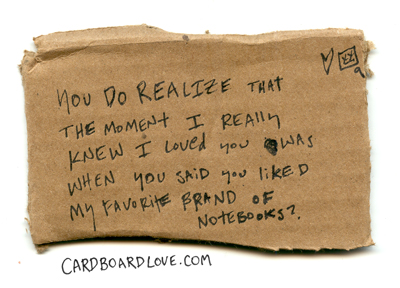 YOU DO REALIZE THAT
THE MOMENT I REALLY
KNEW I LOVED YOU WAS
WHEN YOU SAID YOU LIKED
MY FAVORITE BRAND OF
NOTEBOOKS?.
CARDBOARDLOVE.COM